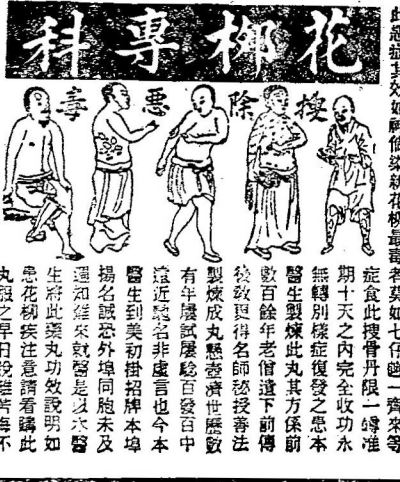 花柳專科
搜除惡毒
此惡症其效如神倘染新花柳最毒者莫如七仔一齊來等
症食此搜骨丹限一罇准
期十天之內完全收功永
無轉別樣症復發之患本
醫生製煉此丸其方係前
數百餘年老僧遺下前傳
後教更得名師秘授善法
製煉成丸懸壺濟世歷數
有年屢試屢驗百發百中
遠近馳名非虛言也今本
醫生到美初掛招牌本埠
揚名誠恐外埠同胞未及
週知來就醫是以本醫
生將此藥丸功效說明如
患花柳疾注意請看購此
丸服之早日脫離苦海不